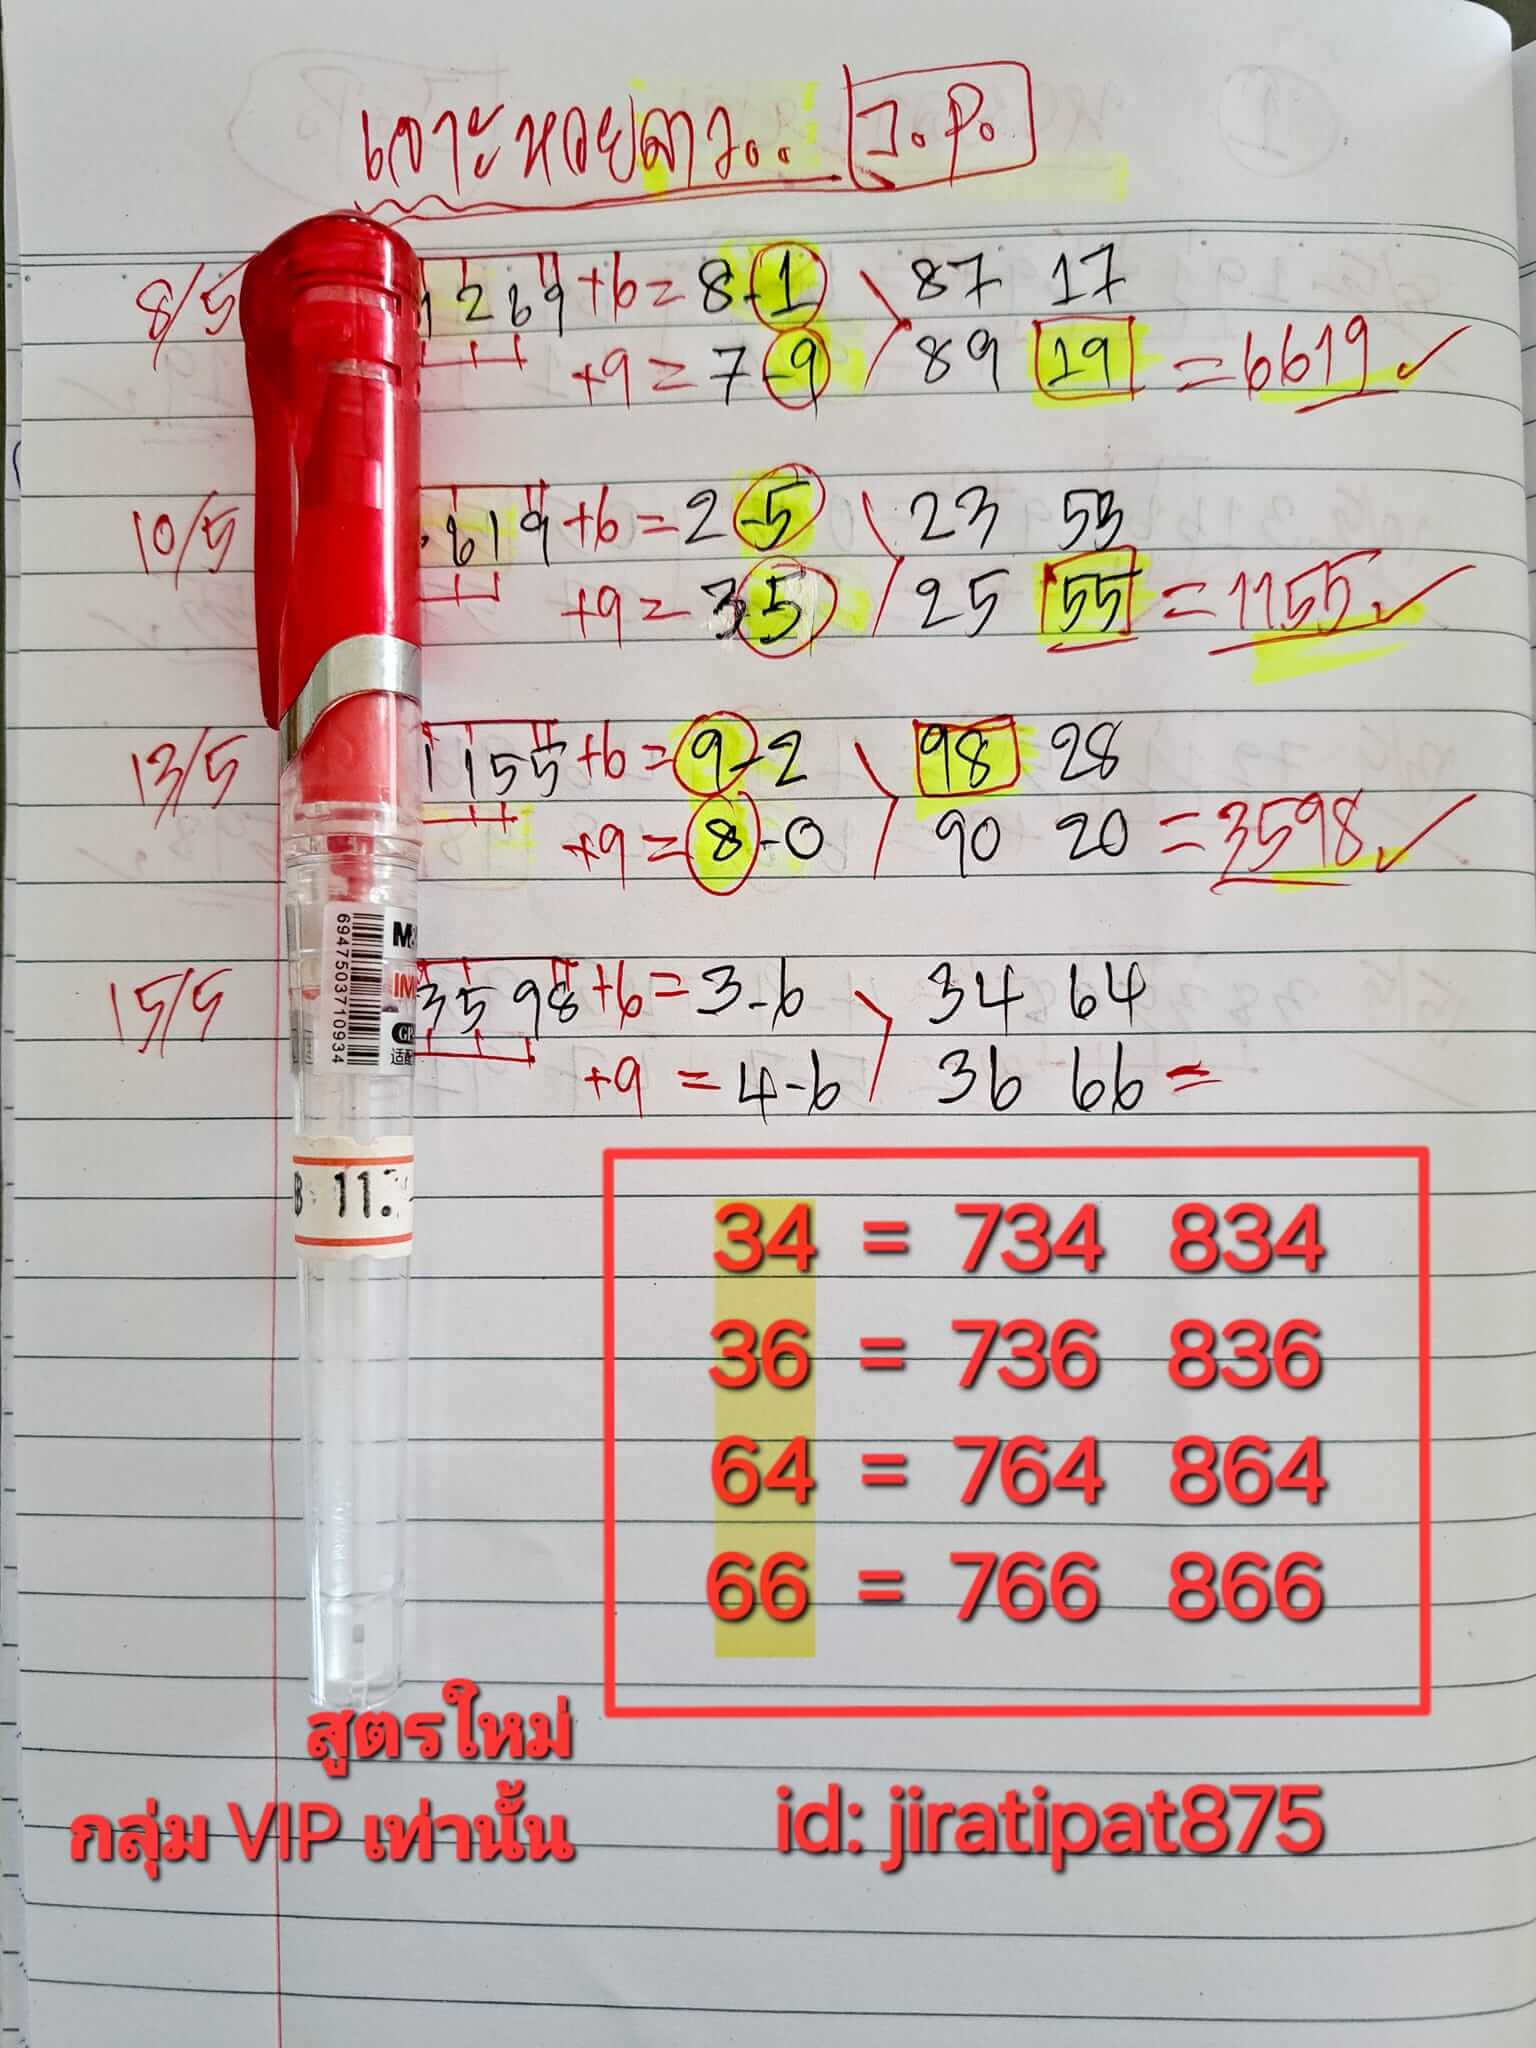 เจาะหวยลาว.. J.P.
8/5 1269 +6 = 8-1 87 17
+9 = 7-9 89 19 = 6619 ✓
10/5 619 +6 = 2-5 23 53
+9 = 3 5 25 55 = 1155 ✓
13/5 1155 +6 = 9-2 98 28
+9 = 8-0 90 20 = 3598 ✓
15/5 3598 +6 = 3-6 34 64
+9 = 4-6 36 66 =
6947503710934
11.
34 = 734 834
36 = 736 836
64 = 764 864
66 = 766 866
สูตรใหม่
กลุ่ม VIP เท่านั้น
id: jiratipat875